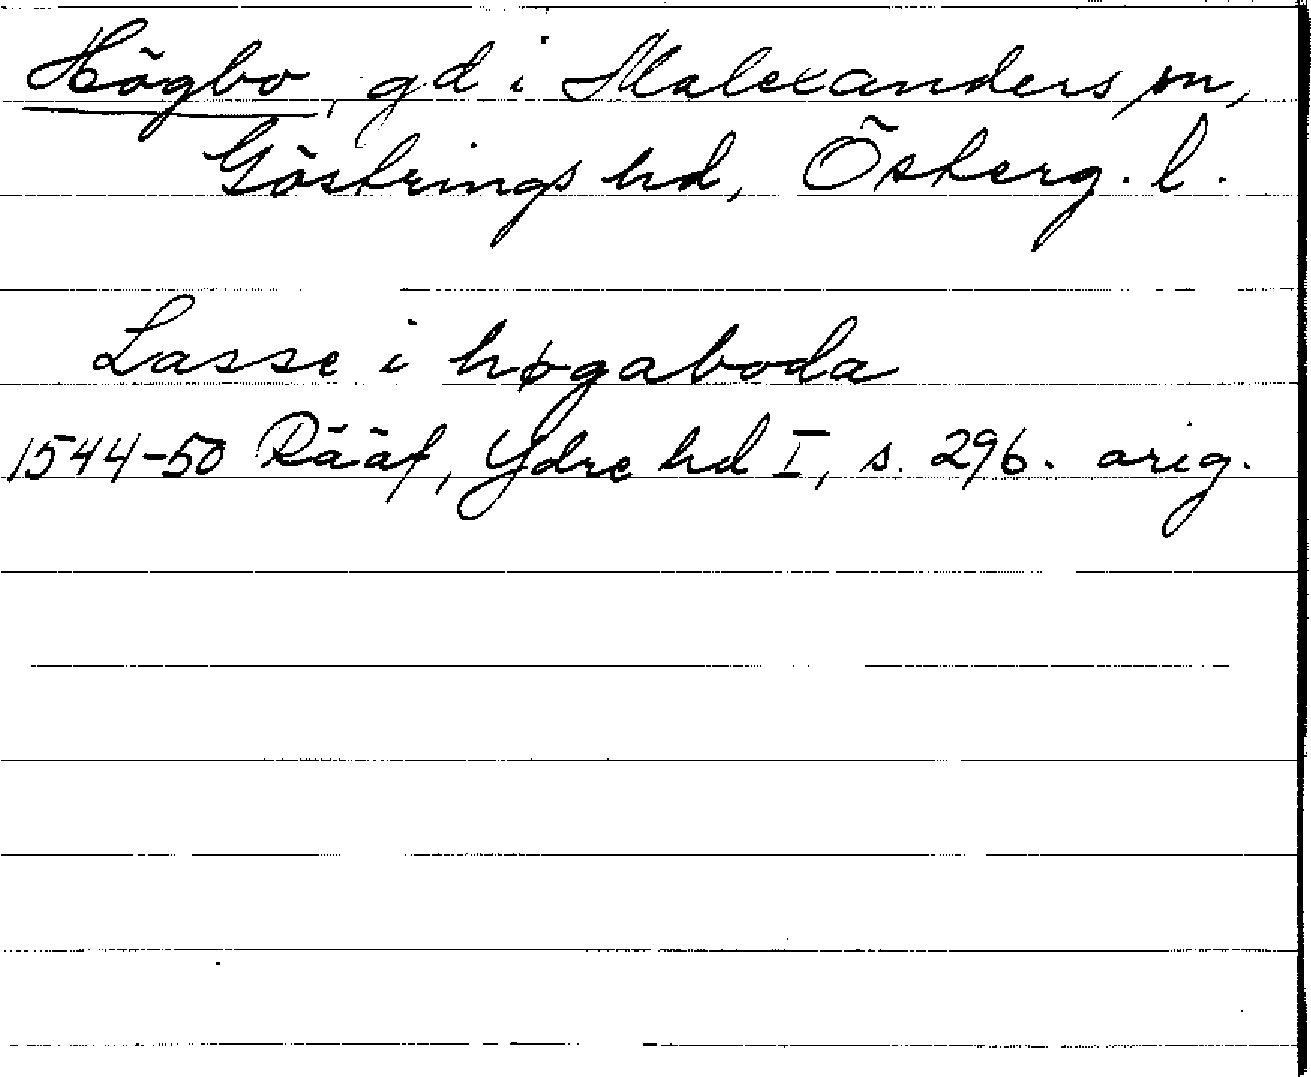 Högbo, gd i Malexanders sn,
Göstrings hd, Österg. l.
Lasse i høgaboda
1544-50 Rääf, Ydre hd I, s. 296. orig.